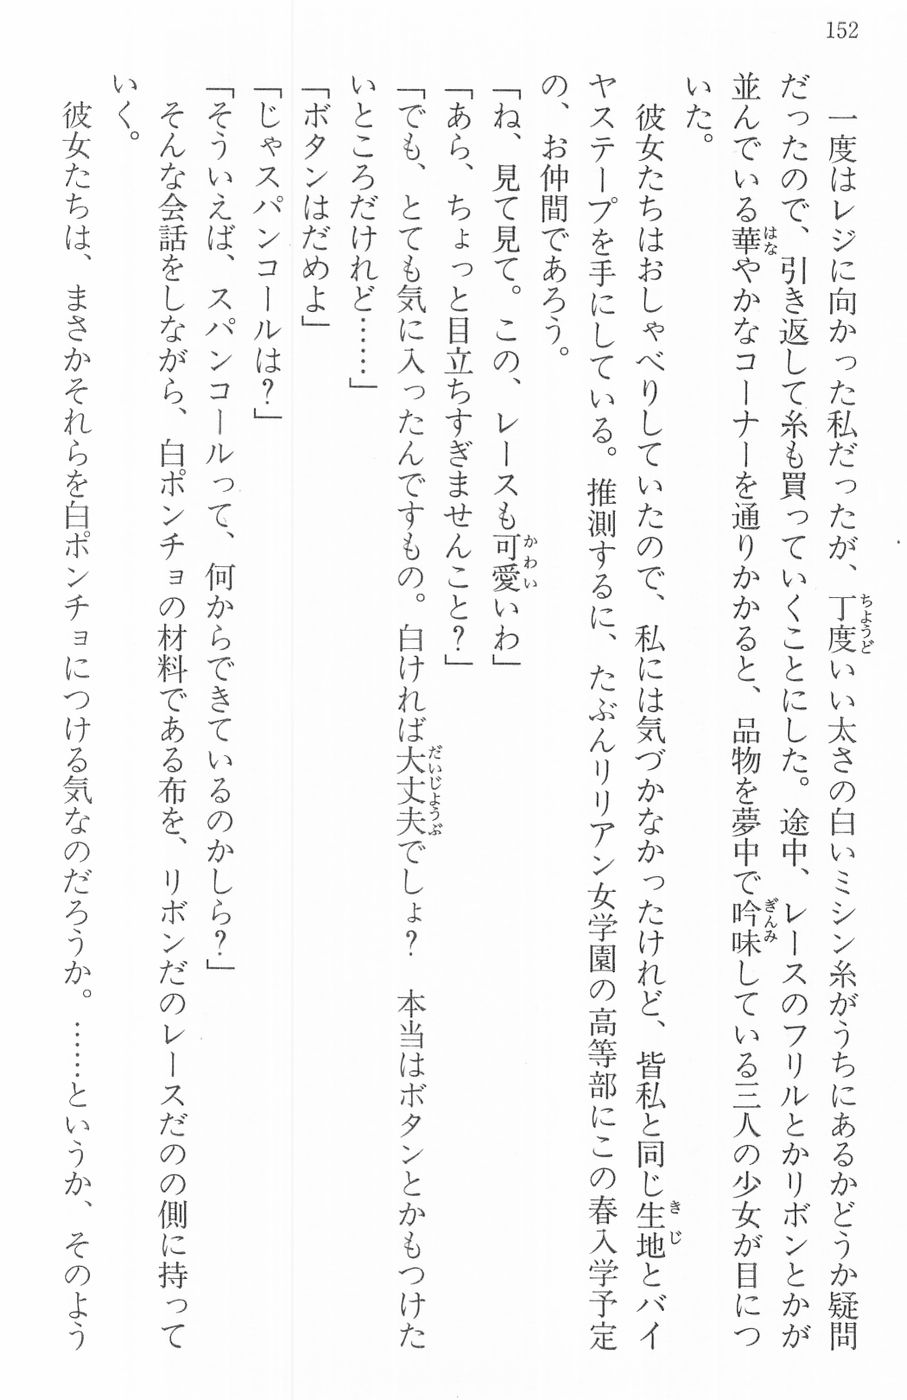 152
一度はレジに向かった私だったが、丁度いい太さの白いミシン糸がうちにあるかどうか疑問
だったので、引き返して糸も買っていくことにした。途中、レースのフリルとかリボンとかが
並んでいる華やかなコーナーを通りかかると、品物を夢中で吟味している三人の少女が目につ
いた。
彼女たちはおしゃべりしていたので、私には気づかなかったけれど、皆私と同じ生地とバイ
ヤステープを手にしている。推測するに、たぶんリリアン女学園の高等部にこの春入学予定
の、お仲間であろう。
「ね、見て見て。この、レースも可愛いわ」
「あら、ちょっと目立ちすぎませんこと？」
「でも、とても気に入ったんですもの。白ければ大丈夫でしょ？　本当はボタンとかもつけた
いところだけれど……」
「ボタンはだめよ」
「じゃスパンコールは？」
「そういえば、スパンコールって、何からできているのかしら？」
そんな会話をしながら、白ポンチョの材料である布を、リボンだのレースだのの側に持って
いく。
彼女たちは、まさかそれらを白ポンチョにつける気なのだろうか。……というか、そのよう